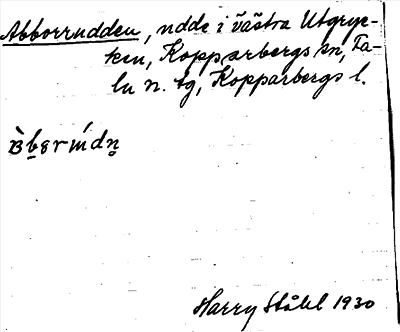 Abborrudden, udde i västra Utgryc-
ken, Kopparbergs sn, Fa-
lu n. tg, Kopparbergs l.
Harry Ståhl 1930